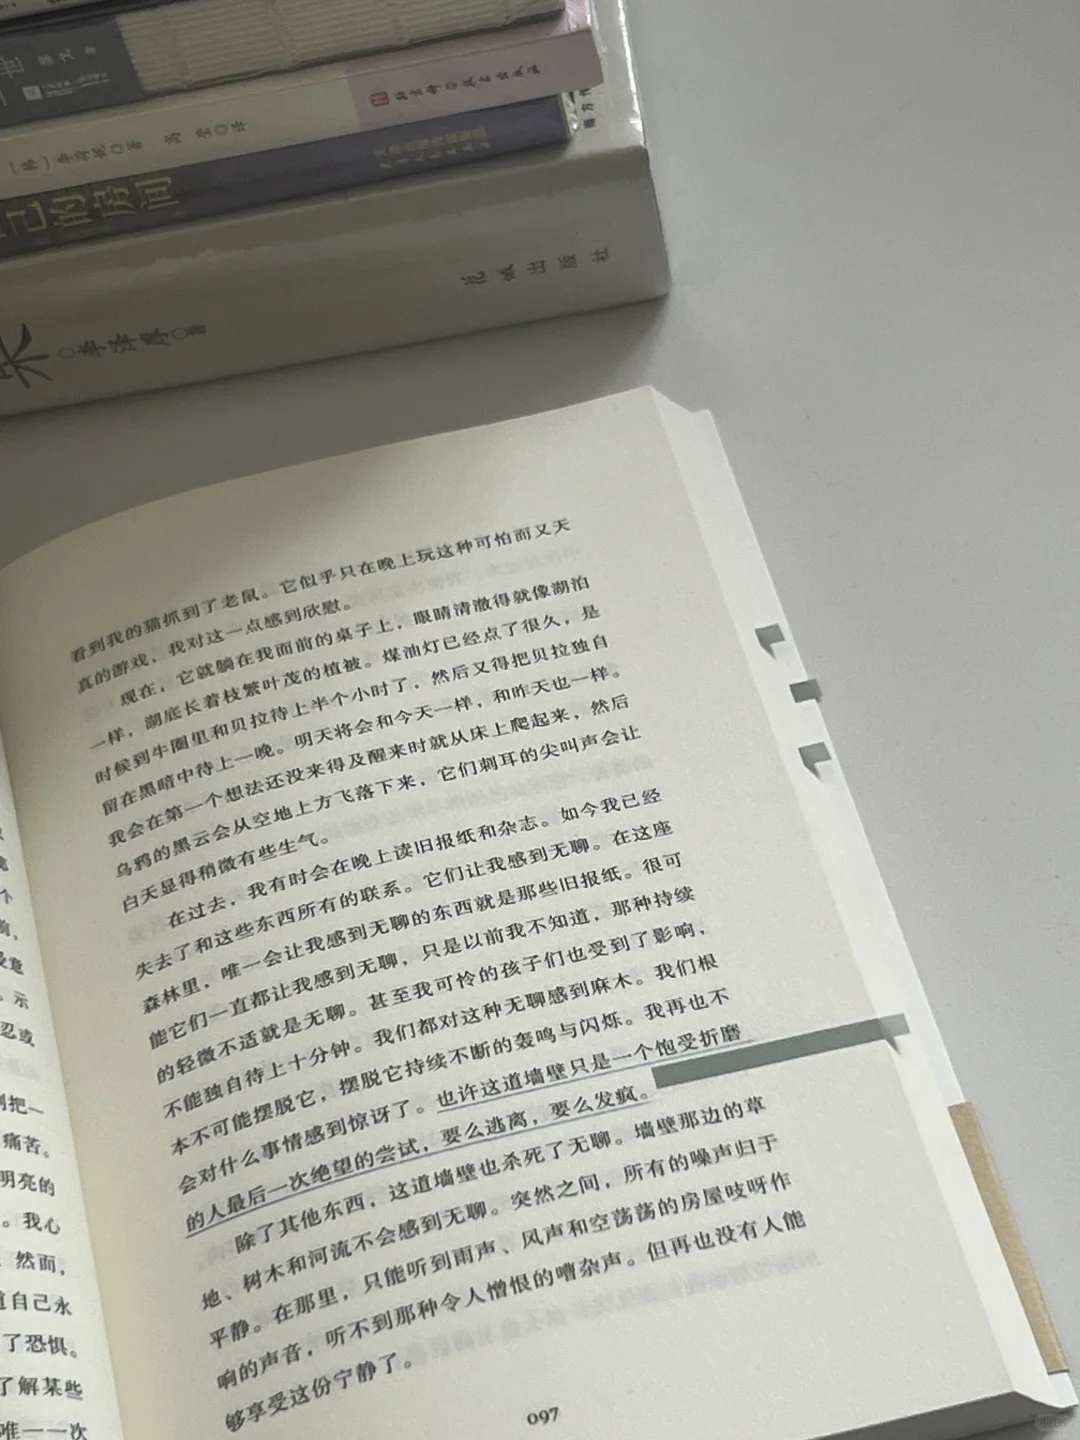 世
(韩)李奇妮〇著 高莹〇译
北京科学技术出版社
己的房间
李泽厚〇著
花城出版社
看到我的猫抓到了老鼠。它似乎只在晚上玩这种可怕而又天
真的游戏，我对这一点感到欣慰。
现在，它就躺在我面前的桌子上，眼睛清澈得就像湖泊
一样，湖底长着枝繁叶茂的植被。煤油灯已经点了很久，是
时候到牛圈里和贝拉待上半个小时了，然后又得把贝拉独自
留在黑暗中待上一晚。明天将会和今天一样，和昨天也一样。
我会在第一个想法还没来得及醒来时就从床上爬起来，然后
乌鸦的黑云会从空地上方飞落下来，它们刺耳的尖叫声会让
白天显得稍微有些生气。
在过去，我有时会在晚上读旧报纸和杂志。如今我已经
失去了和这些东西所有的联系。它们让我感到无聊。在这座
森林里，唯一会让我感到无聊的东西就是那些旧报纸。很可
能它们一直都让我感到无聊，只是以前我不知道，那种持续
的轻微不适就是无聊。甚至我可怜的孩子们也受到了影响，
不能独自待上十分钟。我们都对这种无聊感到麻木。我们根
本不可能摆脱它，摆脱它持续不断的轰鸣与闪烁。我再也不
会对什么事情感到惊讶了。也许这道墙壁只是一个饱受折磨
的人最后一次绝望的尝试，要么逃离，要么发疯。
除了其他东西，这道墙壁也杀死了无聊。墙壁那边的草
地、树木和河流不会感到无聊。突然之间，所有的噪声归于
平静。在那里，只能听到雨声、风声和空荡荡的房屋吱呀作
响的声音，听不到那种令人憎恨的嘈杂声。但再也没有人能
够享受这份宁静了。
097
个
意
。示
忍或
把一
痛苦。
明亮的
。我心
然而，
道自己永
了恐惧。
了解某些
唯一一次